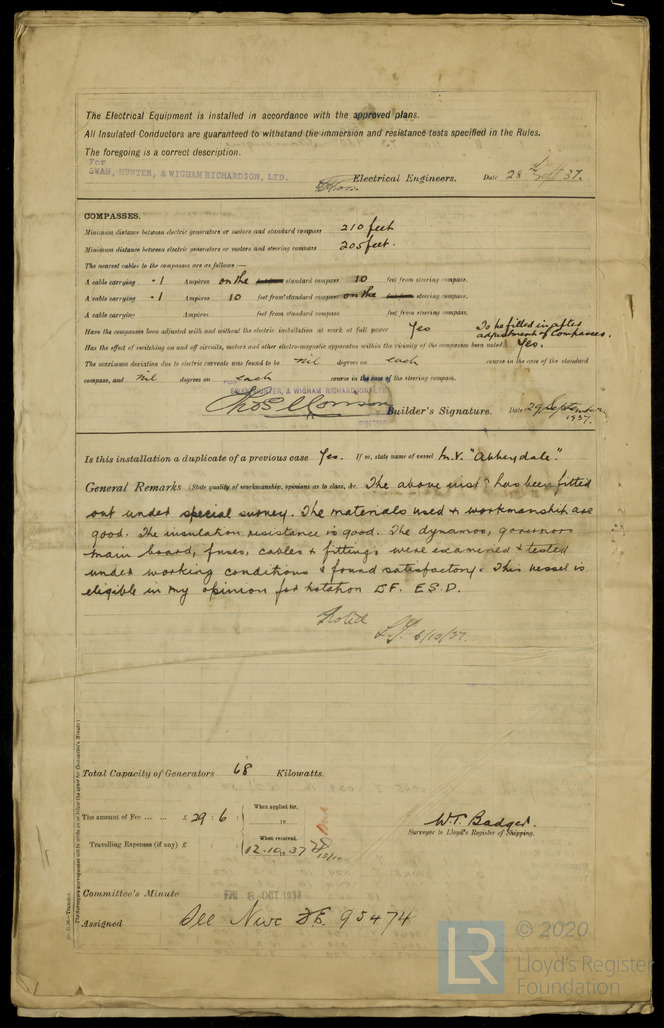 The Electrical Equipment is installed in accordance with the approved plans.
All Insulated Conductors are guaranteed to withstand the immersion and resistance tests specified in the Rules.
The foregoing is a correct description.
For
SWAN, HUNTER, & WIGHAM RICHARDSON, LTD.
Electrical Engineers. Date 28 Sept 37.
COMPASSES.
Minimum distance between electric generators or motors and standard compass 210 feet
Minimum distance between electric generators or motors and steering compass 205 feet.
The nearest cables to the compasses are as follows:—
A cable carrying ·1 Ampères on the feet from standard compass 10 feet from steering compass.
A cable carrying ·1 Ampères 10 feet from standard compass on the feet from steering compass.
A cable carrying Ampères feet from standard compass feet from steering compass.
Have the compasses been adjusted with and without the electric installation at work at full power Yes To be fitted in after adjustment of compasses.
Has the effect of switching on and off circuits, motors and other electro-magnetic apparatus within the vicinity of the compasses been noted Yes.
The maximum deviation due to electric currents was found to be nil degrees on each course in the case of the standard
compass, and nil degrees on each course in the case of the steering compass.
FOR
SWAN, HUNTER, & WIGHAM RICHARDSON, LTD.
Builder's Signature. Date 29 September 1937.
DIRECTOR
Is this installation a duplicate of a previous case Yes. If so, state name of vessel M.V. "Abbeydale".
General Remarks (State quality of workmanship, opinions as to class, &c. The above inst. has been fitted
out under special survey. The materials used & workmanship are
good. The insulation resistance is good. The dynamos, governors
main board, fuses, cables & fittings were examined & tested
under working conditions & found satisfactory. This vessel is
eligible in my opinion for notation DF. ESD.
Noted
6/10/37.
Total Capacity of Generators 68 Kilowatts.
The amount of Fee ... ... £ 29 : 6 :
When applied for,
19
Travelling Expenses (if any) £
When received,
12.10.1937
W.T. Badger.
Surveyor to Lloyd's Register of Shipping.
Committee's Minute FRI 8 OCT 1937
Assigned See Nwc 95474
© 2020
LR
Lloyd's Register
Foundation